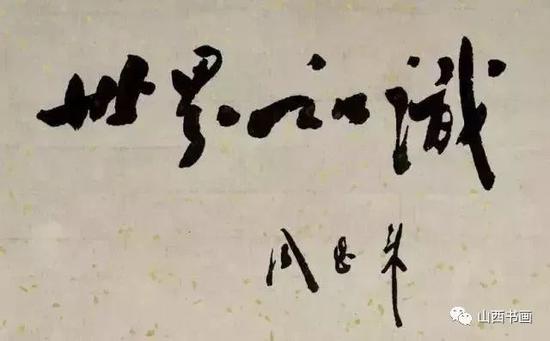 世界知識
周恩来
山西书画